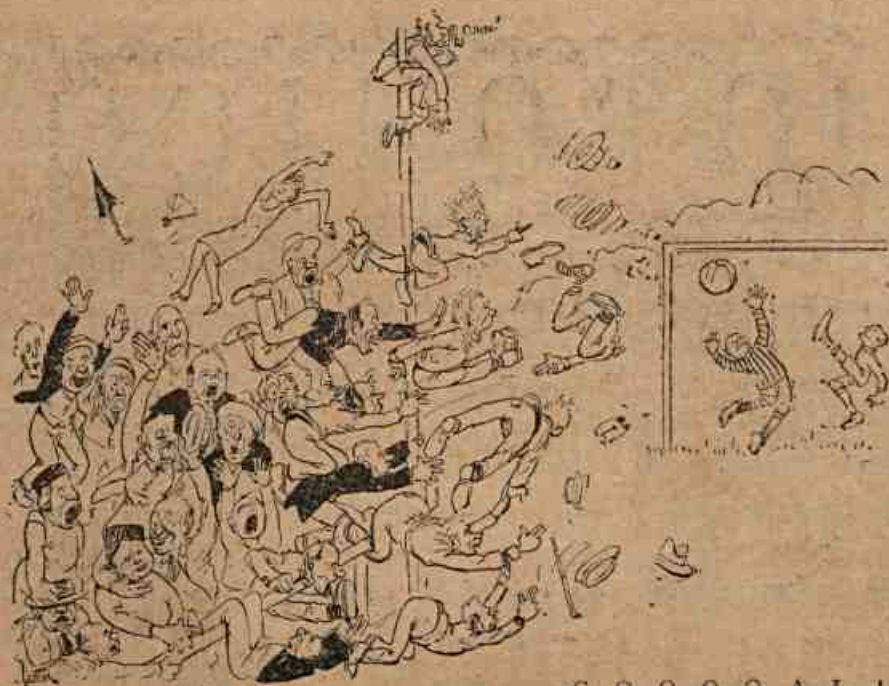 G O O O O A L !